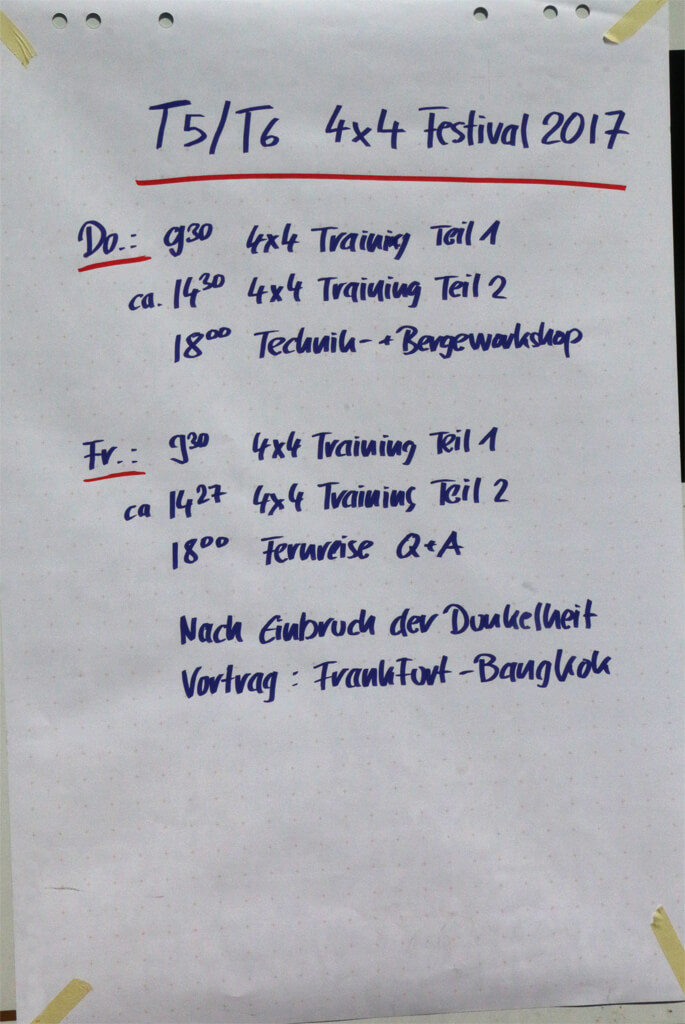 T5/T6 4x4 Festival 2017
Do.: 9³⁰ 4x4 Training Teil 1
ca. 14³⁰ 4x4 Training Teil 2
18⁰⁰ Technik- + Bergeworkshop
Fr.: 9³⁰ 4x4 Training Teil 1
ca 14²⁷ 4x4 Training Teil 2
18⁰⁰ Fernreise Q+A
Nach Einbruch der Dunkelheit
Vortrag: Frankfurt-Bangkok